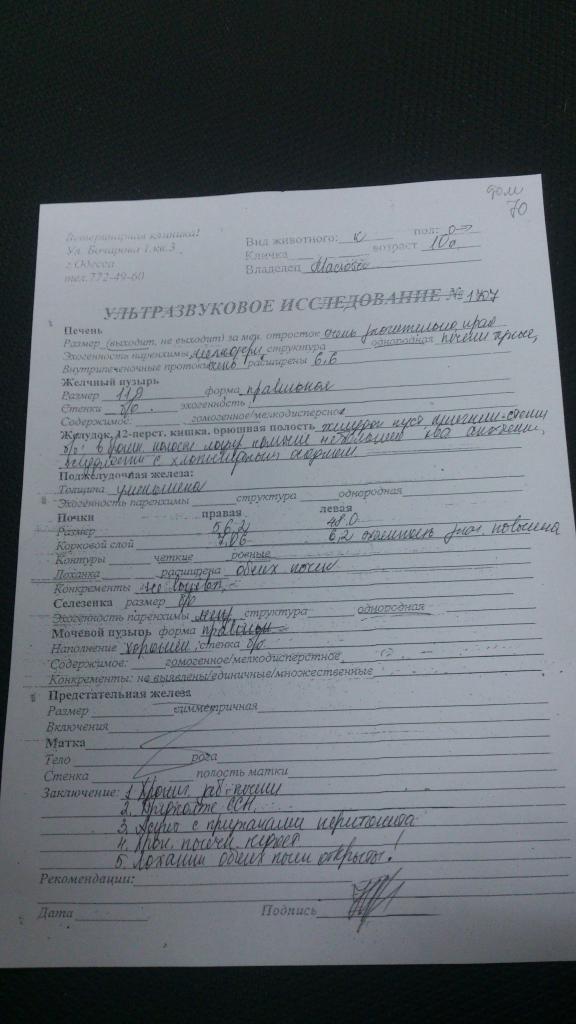 дом
70
Ветеринарная клиника!
Ул. Бочарова 1.кв.3
г.Одесса
тел.772-49-60
Вид животного: к пол:
Кличка возраст 10л.
Владелец
УЛЬТРАЗВУКОВОЕ ИССЛЕДОВАНИЕ № 1707
Печень
Размер (выходит, не выходит) за меч. отросток очень значительно, края
Эхогенность паренхимы структура однородная почти
Внутрипеченочные протоки расширены 6.6
Желчный пузырь
Размер 11,9 форма правильная
Стенка б/о эхогенность
Содержимое: гомогенное/мелкодисперсное
Желудок, 12-перст. кишка, брюшная полость желудок пуст
б/о. в брюшн. полости
жидкости с хлопьевидным осадком
Поджелудочная железа:
Толщина уменьшена
Эхогенность паренхимы структура однородная
Почки правая левая
Размер 56.2 48.0
Корковой слой 7.06 6,2 повышена
Контуры четкие ровные
Лоханка расширена обеих почек
Конкременты не
Селезенка размер б/о
Эхогенность паренхимы структура однородная
Мочевой пузырь форма правильн
Наполнение хорошее, стенка б/о
Содержимое: гомогенное/мелкодисперстное
Конкременты: не выявлены/единичные/множественные
Предстательная железа
Размер симметричная
Включения
Матка
Тело рога
Стенка полость матки
Заключение: 1.
2. ССН.
3. Асцит с признаками перитонита
4. Хрон.
5. Лоханки обеих почек открыты!
Рекомендации:
Дата Подпись